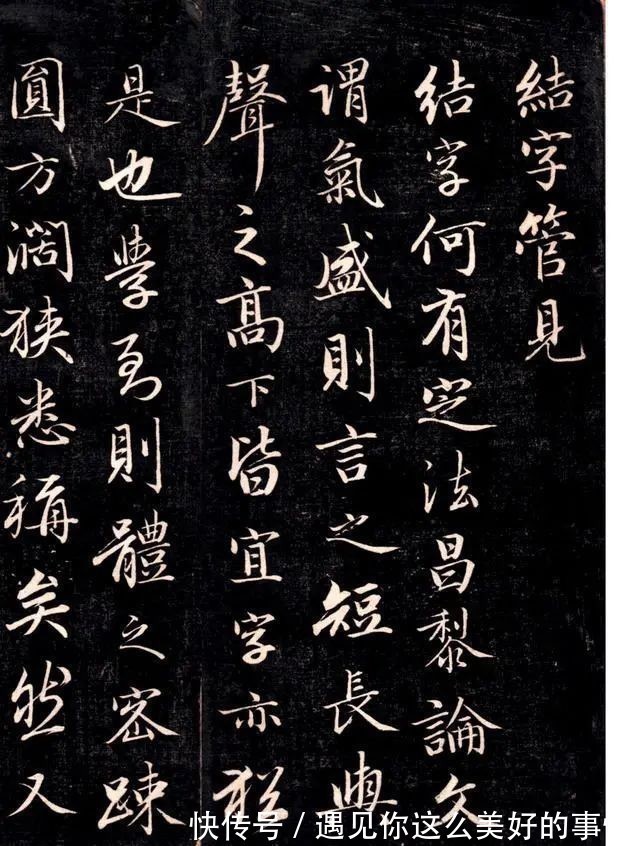 結字管見
結字何有定法昌黎論文
謂氣盛則言之短長與
聲之高下皆宜字亦猶
是也學到則體之密疎
圓方濶狹悉稱矣然又
快传号/遇见你这么美好的事